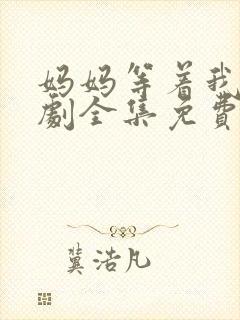 妈妈等着我
劇全集免費
冀浩凡